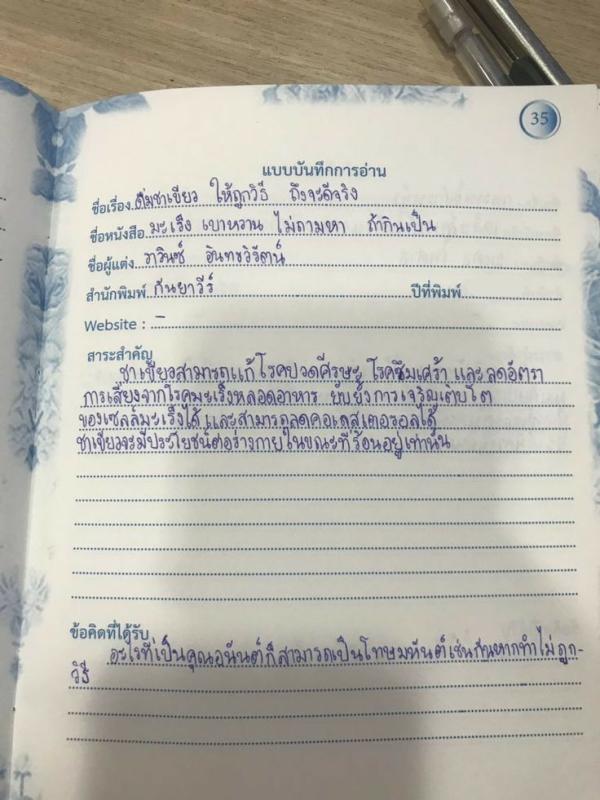 35
แบบบันทึกการอ่าน
ชื่อเรื่อง ดื่มชาเขียว ให้ถูกวิธี ถึงจะดีจริง
ชื่อหนังสือ มะเร็ง เบาหวาน ไม่ถามหา ถ้ากินเป็น
ชื่อผู้แต่ง ราวินซ์ อินทขวิรัตน์
สำนักพิมพ์ กันยาวีร์ ปีที่พิมพ์
Website : -
สาระสำคัญ
ชาเขียวสามารถแก้โรคปวดศีรษะ โรคซึมเศร้า และลดอัตรา
การเสี่ยงจากโรคมะเร็งหลอดอาหาร ยับยั้งการเจริญเติบโต
ของเซลล์มะเร็งได้ และสามารถลดคอเลสเตอรอลได้
ชาเขียวจะมีประโยชน์ต่อร่างกายในขณะที่ร้อนอยู่เท่านั้น
ข้อคิดที่ได้รับ
อะไรที่เป็นคุณอนันต์ก็สามารถเป็นโทษมหันต์เช่นกันหากทำไม่ถูก-
วิธี